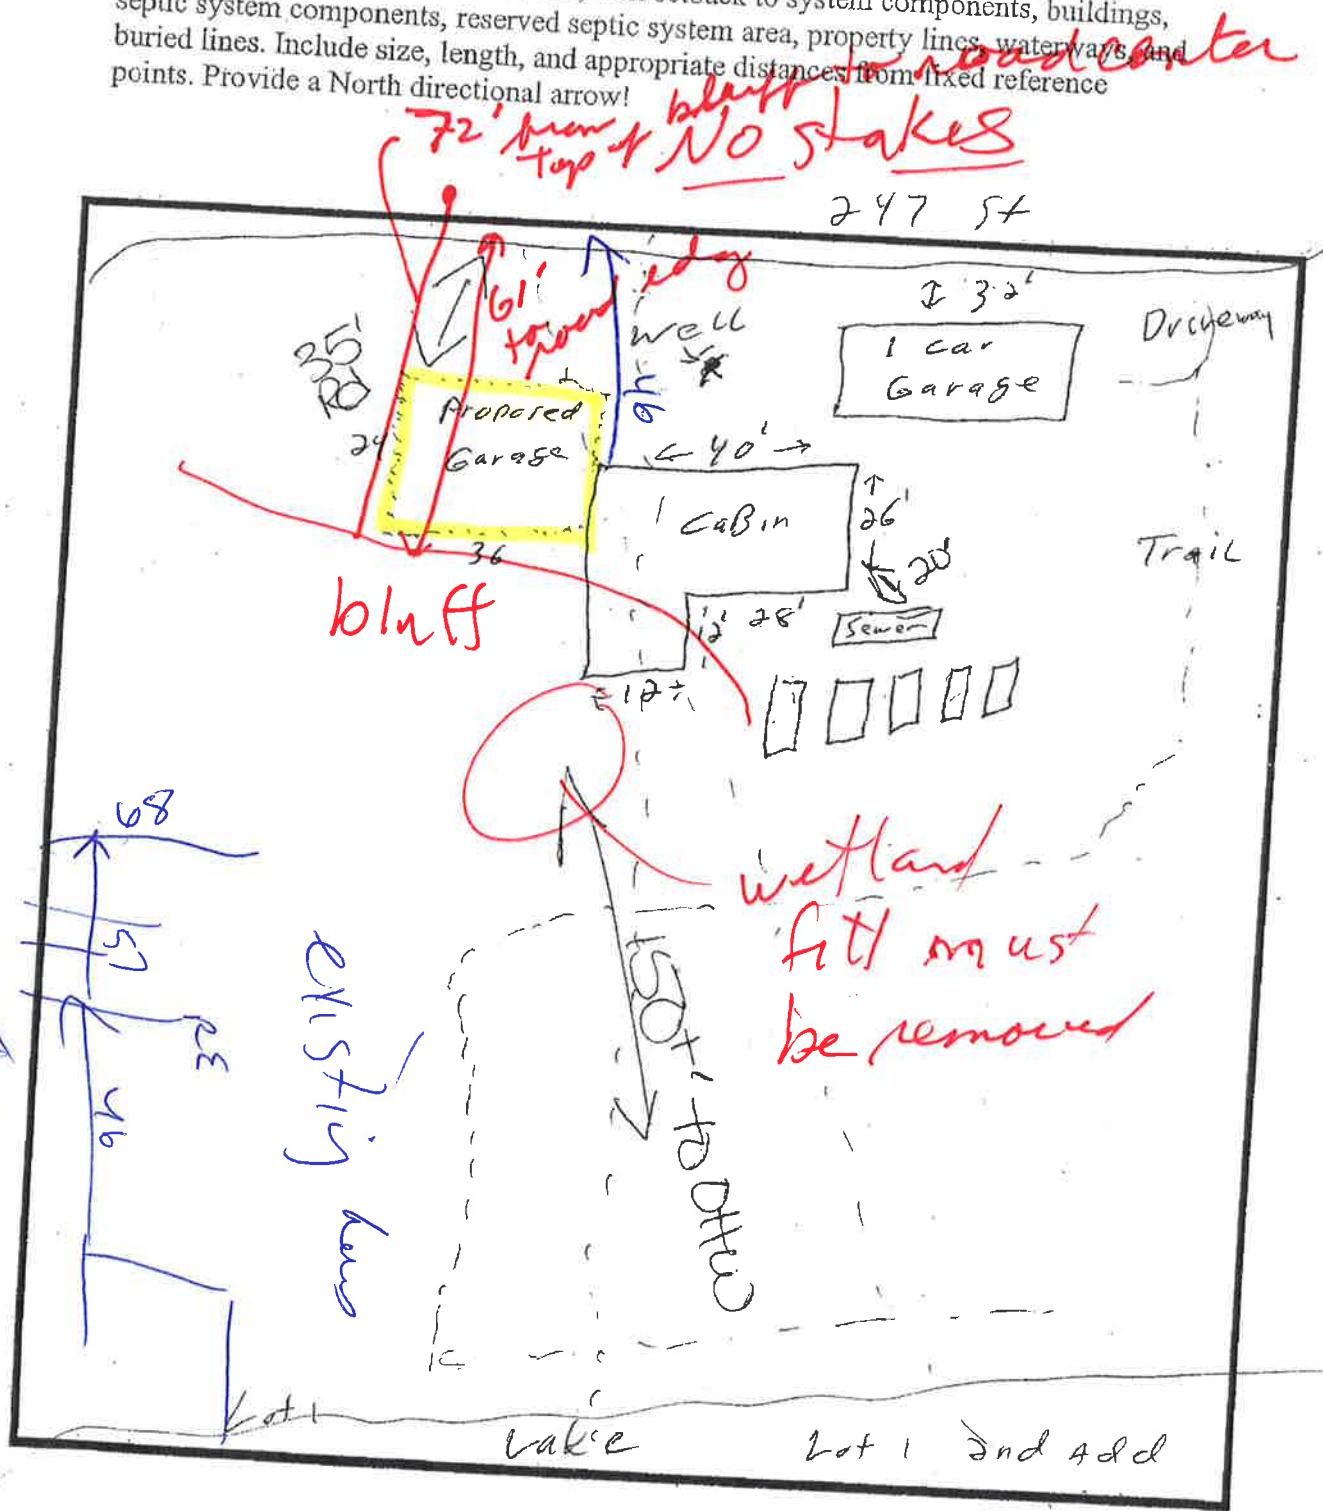 septic system components, reserved septic system area, property lines, waterways, and
buried lines. Include size, length, and appropriate distances from fixed reference
points. Provide a North directional arrow!
72' from top of bluff to road center
No stakes
247 St
61' to road edg
35' Rd
well
32'
1 car
Garage
Driveway
Proposed
Garage
24
36
46
40'
CaBin
26'
20'
Trail
bluff
12'
28'
Sewer
12
68
57
33
46
existing
wetland
fill must
be removed
150+' to OHW
Lot 1
Lake
Lot 1 2nd Add